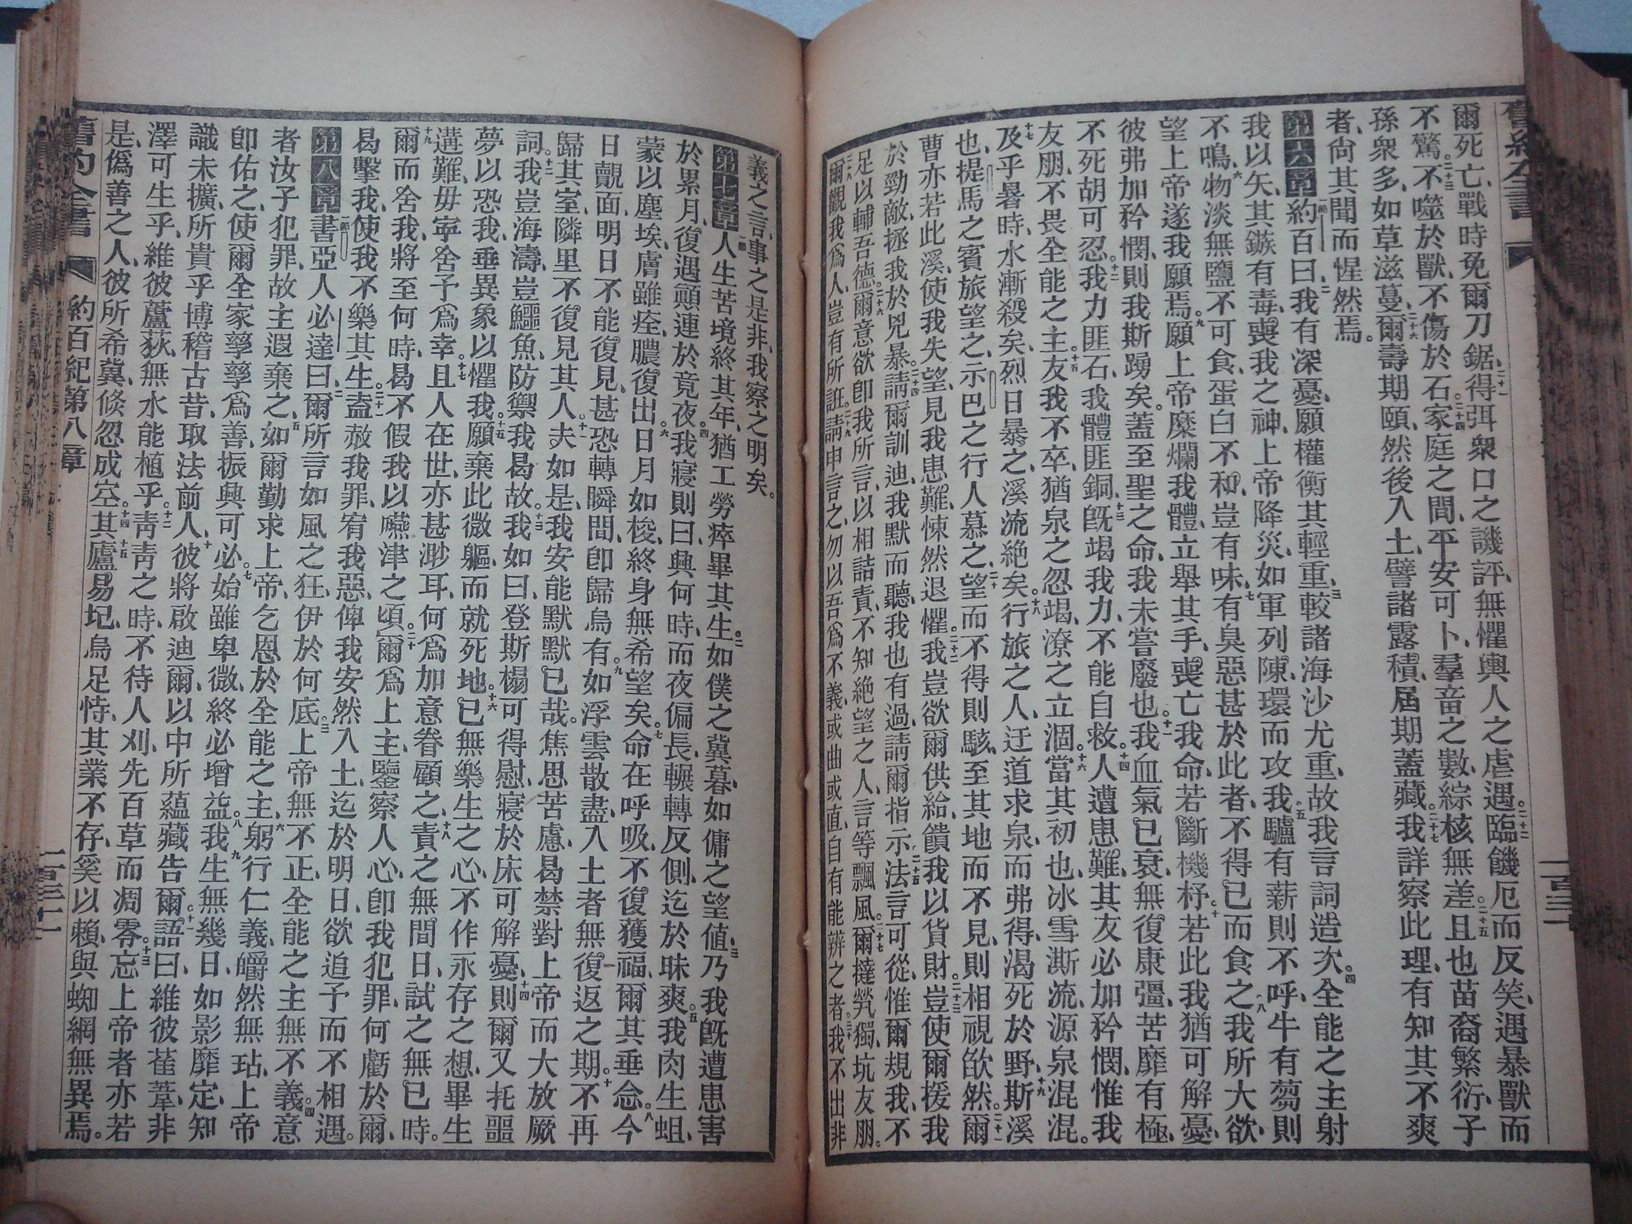 爾死亡、戰時免爾刀鋸、二十一得弭衆口之譏評、無懼輿人之虐遇、二十二臨饑厄而反笑、遇暴獸而
不驚、二十三不噬於獸、不傷於石、二十四家庭之間、平安可卜、羣畜之數、綜核無差、二十五且也苗裔繁衍、子
孫衆多、如草滋蔓、二十六爾壽期頤、然後入土、譬諸露積、屆期蓋藏、二十七我詳察此理、有知其不爽
者、尙其聞而惺然焉。
第六章一節約百曰、二我有深憂、願權衡其輕重、三較諸海沙尤重、故我言詞造次、四全能之主射
我以矢、其鏃有毒、喪我之神、上帝降災、如軍列陳、環而攻我、五驢有薪則不呼、牛有蒭則
不鳴、六物淡無鹽、不可食、蛋白不和、豈有味、七有臭惡甚於此者、不得已而食之、八我所大欲、
望上帝遂我願焉、九願上帝糜爛我體、立舉其手、喪亡我命、若斷機杼、十若此我猶可解憂、
彼弗加矜憫、則我斯踴矣、蓋至聖之命、我未嘗廢也、十一我血氣已衰、無復康彊、苦靡有極、
不死胡可忍、十二我力匪石、我體匪銅、十三旣竭我力、不能自救、十四人遭患難、其友必加矜憫、惟我
友朋、不畏全能之主、十五友我不卒、猶泉之忽竭、潦之立涸、十六當其初也、冰雪澌流、源泉混混、
十七及乎暑時、水漸殺矣、烈日暴之、溪流絕矣、十八行旅之人、迂道求泉、而弗得、渴死於野、十九斯溪
也、提馬之賓旅望之、示巴之行人慕之、二十望而不得則駭、至其地而不見、則相視欿然、二十一爾
曹亦若此溪、使我失望、見我患難、悚然退懼、二十二我豈欲爾供給、饋我以貨財、二十三豈使爾援我
於勁敵、拯我於兇暴、二十四請爾訓迪、我默而聽、我也有過、請爾指示、二十五法言可從、惟爾規我、不
足以輔吾德、二十六爾意欲卽我所言、以相詰責、不知絕望之人、言等飄風、二十七爾撻煢獨、坑友朋。
二十八爾觀我爲人、豈有所誑、二十九請申言之、勿以吾爲不義、或曲或直、自有能辨之者、三十我不出非
義之言、事之是非、我察之明矣。
第七章一節人生苦境、終其年、猶工勞瘁畢其生、二如僕之冀暮、如傭之望値、三乃我旣遭患害
於累月、復遇顚連於竟夜、四我寢則曰、興何時、而夜偏長、輾轉反側、迄於昧爽、五我肉生蛆、
蒙以塵埃、膚雖痊、膿復出、六日月如梭、終身無希望矣、七命在呼吸、不復獲福、爾其垂念、八今
日覿面、明日不能復見、甚恐轉瞬間、卽歸烏有、九如浮雲散盡、入土者無復返之期、十不再
歸其室、隣里不復見其人、十一夫如是、我安能默默已哉、焦思苦慮、曷禁對上帝而大放厥
詞、十二我豈海濤、豈鱷魚、防禦我曷故、十三我如曰登斯榻、可得慰、寢於床、可解憂、十四則爾又托噩
夢以恐我、垂異象以懼我、十五願棄此微軀、而就死地、十六已無樂生之心、不作永存之想、畢生
遘難、毋寧舍予爲幸、十七且人在世亦甚渺耳、何爲加意眷顧之、十八責之無間日、試之無已時。
十九爾而舍我、我將至何時、曷不假我以嚥津之頃、二十爾爲上主、鑒察人心、卽我犯罪、何虧於爾、
曷擊我、使我不樂其生、二十一盍赦我罪、宥我惡、俾我安然入土、迄於明日、欲追予而不相遇。
第八章一節書亞人必達曰、二爾所言如風之狂、伊於何底、三上帝無不正、全能之主無不義、四意
者汝子犯罪、故主遐棄之、五如爾勤求上帝、乞恩於全能之主、六躬行仁義、皭然無玷、上帝
卽佑之、使爾全家孳孳爲善、振興可必、七始雖卑微、終必增益、八我生無幾日、如影靡定、九知
識未擴、所貴乎博稽古昔、取法前人、十彼將啟迪爾、以中所蘊藏告爾、十一語曰、維彼萑葦、非
澤可生乎、維彼蘆荻、無水能植乎、十二靑靑之時、不待人刈、先百草而凋零、十三忘上帝者亦若
是、僞善之人、彼所希冀、倏忽成空、十四其廬易圮、烏足恃、十五其業不存、奚以賴、與蜘網無異焉。
舊約全書
約百紀第八章